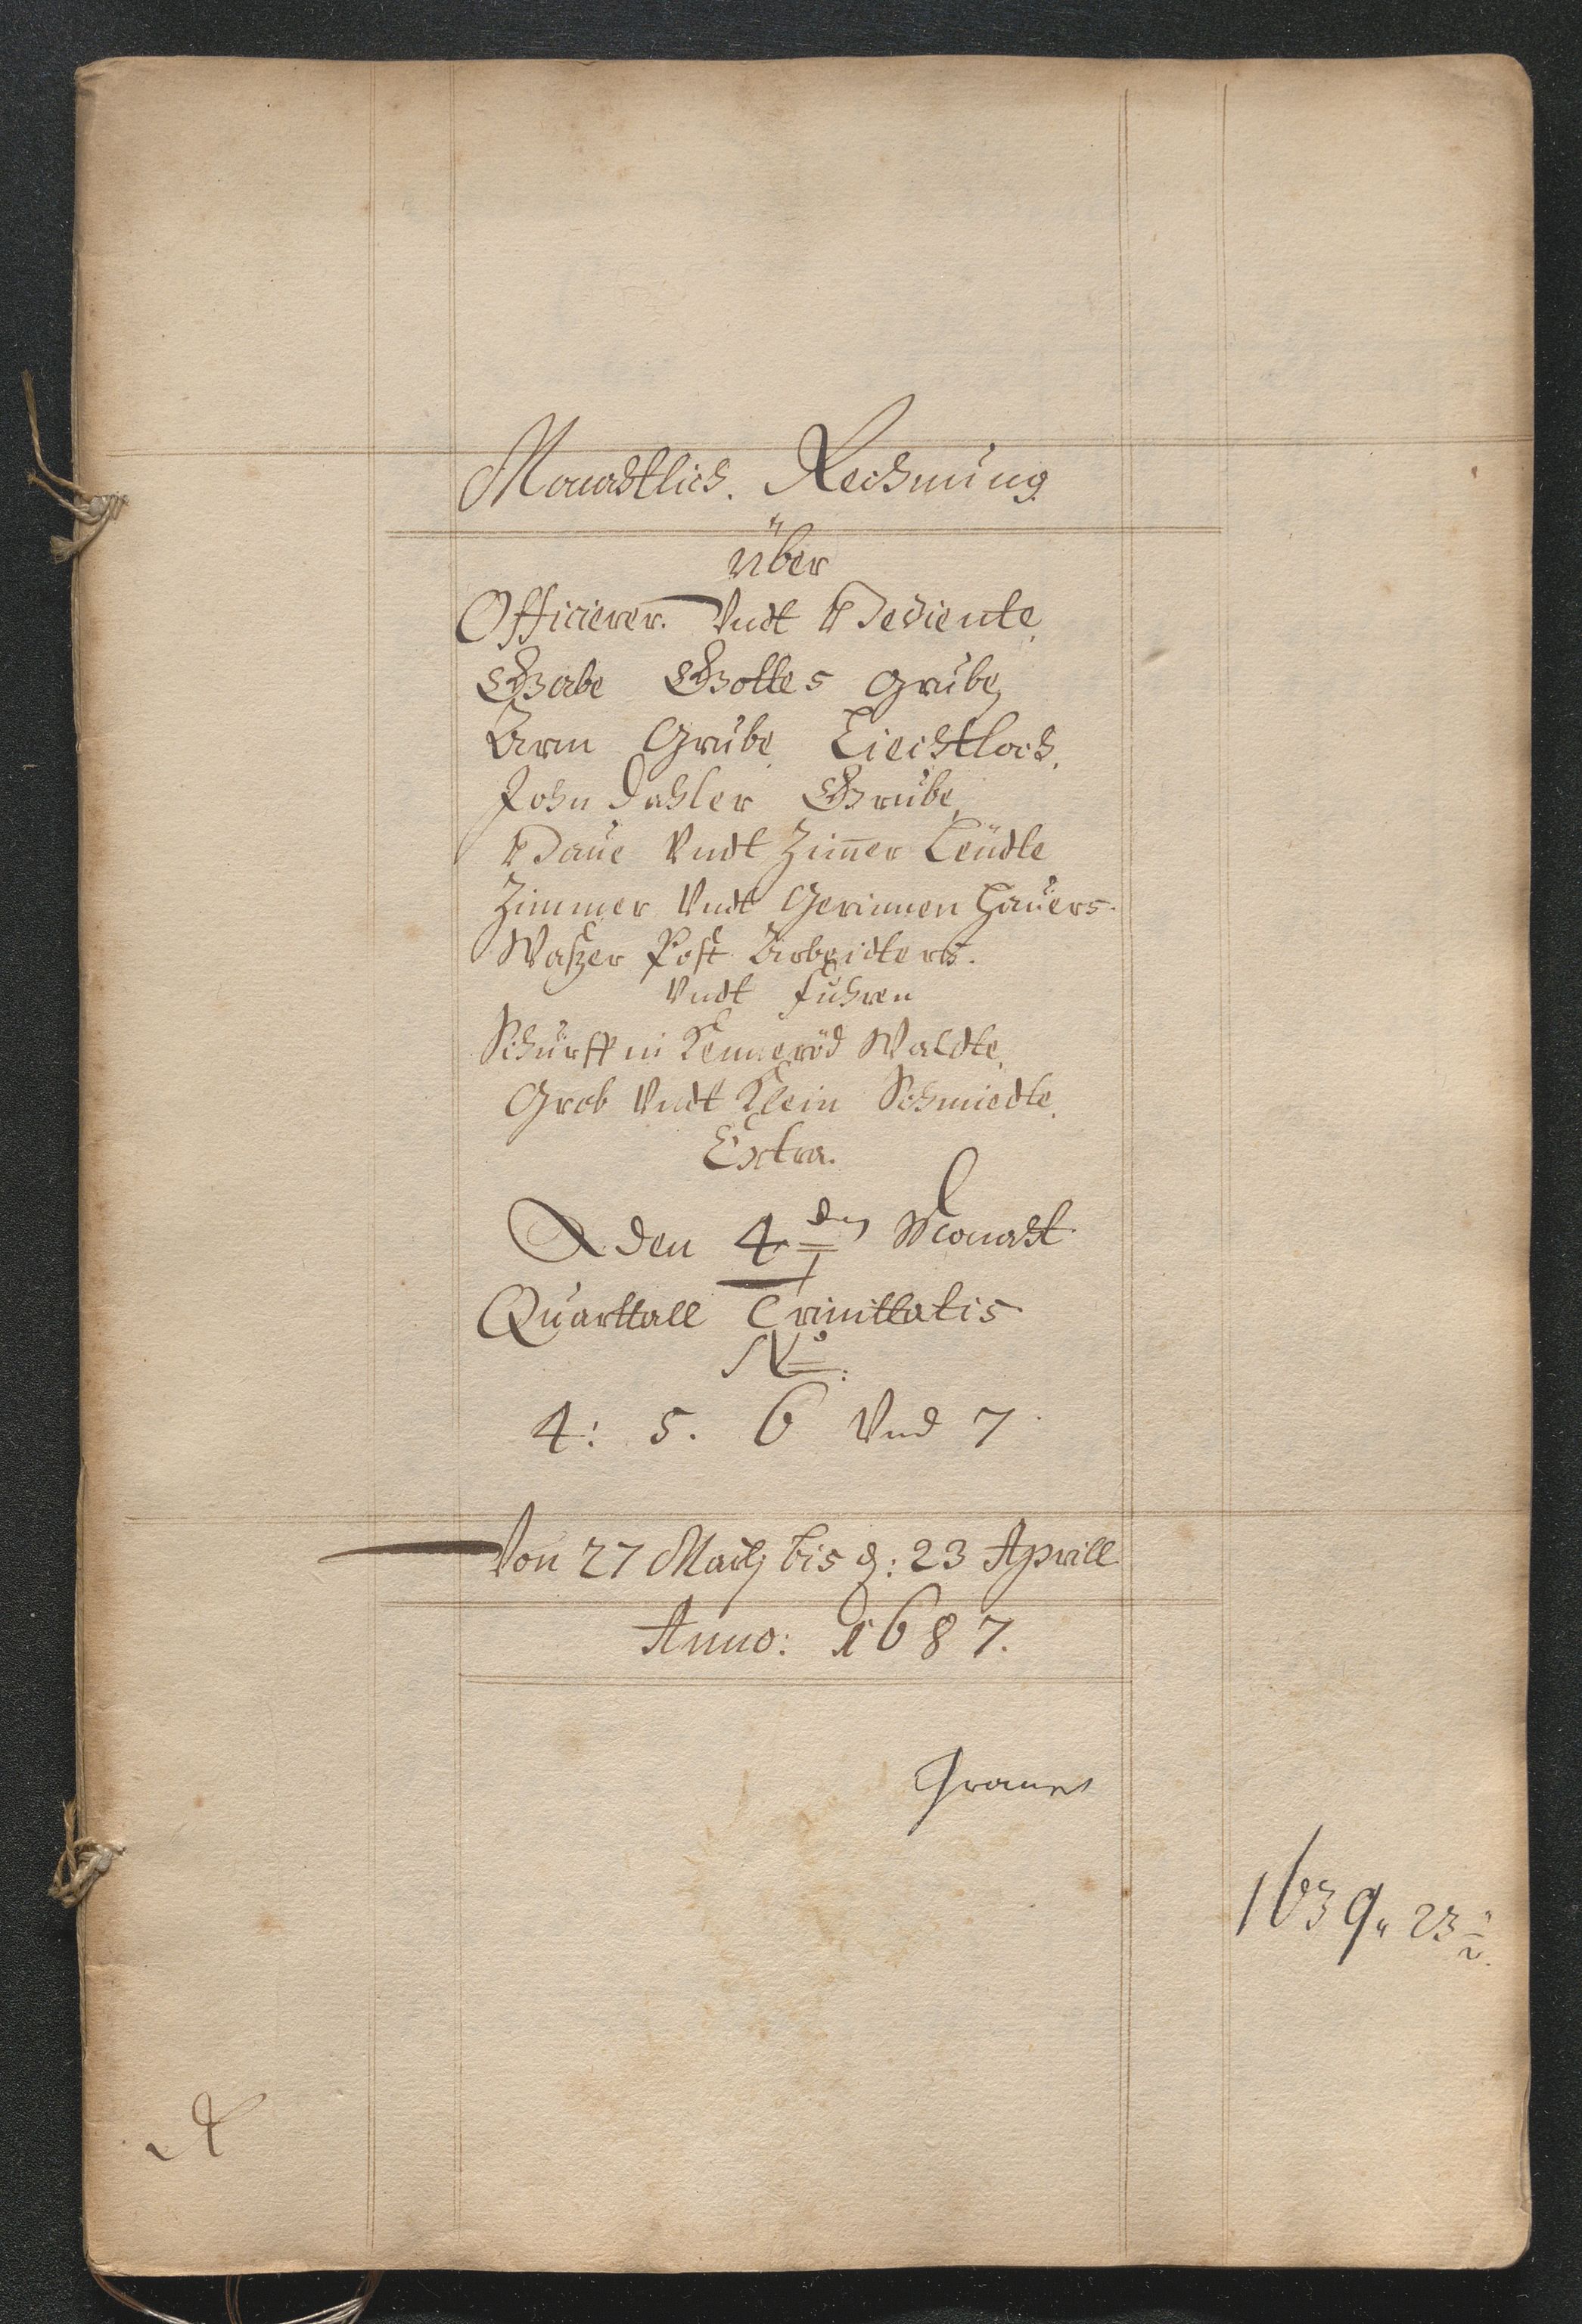 Monadtlich. Rechnung
über
Officierer. Vndt Bediente,
Gabe Gottes Grube,
Arm Grube, Liechtloch,
John Dahler Grube,
Baue Vndt Zim̄er Leüdte
Zimmer Vndt Gerinnen Hauers.
Waßer Post Arbeidters.
Vndt Fuhren
Schurff in Kenneröd Waldte,
Grob Vndt Klein Schmiedte,
Extra.
A den 4den Monadt
Quarttall Trinittatis
No:
4: 5. 6 Vnd 7.
Von 27 Martij bis d: 23 Aprill
Anno: 1687.
1639. 23 1/2.
A